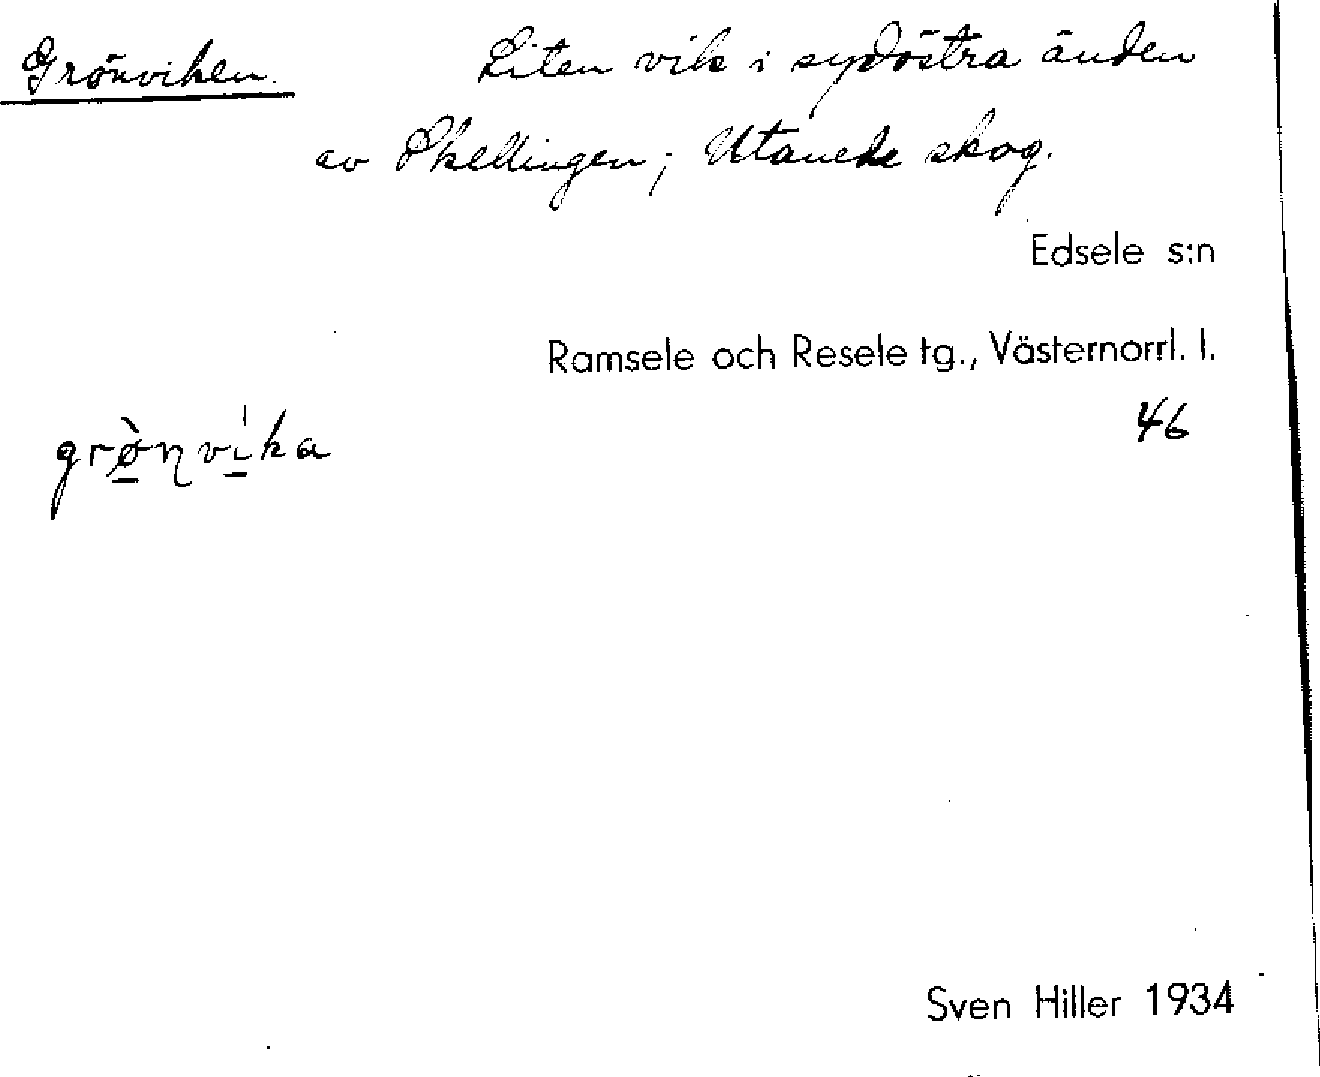 Grönviken. Liten vik i sydöstra änden
av Skellingen; Utanede skog.
Edsele s:n
Ramsele och Resele tg., Västernorrl. l.
46
grø̀nvi̍ka
Sven Hiller 1934